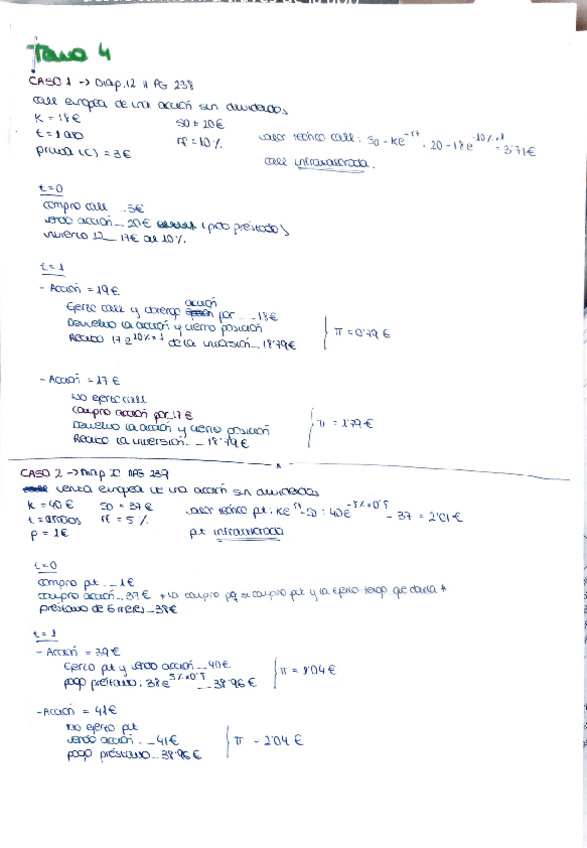 Tema 4
CASO 1 → Diap. 12 // PG 238
call europea de una acción sin dividendos
K = 18€ S0 = 20€
t = 1 año rf = 10% valor teórico call: S0 - Ke^-rt = 20 - 18e^-10%×1 = 3'71€
prima (c) = 3€ call infravalorada.
t=0
compro call ... 3€
vendo acción ... 20€ (pido prestada)
invierto ... 17€ al 10%.
t=1
- Acción = 19€
Ejerzo call y obtengo acción por ... 18€
Devuelvo la acción y cierro posición
Recibo 17e^10%×1 de la inversión ... 18'79€
π = 0'79€
- Acción = 17€
No ejerzo call
compro acción por 17€
Devuelvo la acción y cierro posición
Recibo la inversión ... 18'79€
π = 1'79€
CASO 2 → Diap // PG 239
venta europea de una acción sin dividendos
K = 40€ S0 = 37€ valor teórico pt: Ke^-rt - S0 : 40e^-5%×0'5 - 37 = 2'01€
t = 0'5 años rf = 5%
p = 1€ pt infravalorada
t=0
compro pt ... 1€
compro acción ... 37€ * la compro pq si compro pt y la ejerzo tengo que darla *
préstamo de 6 meses ... 38€
t=1
- Acción = 39€
Ejerzo pt y vendo acción ... 40€
pago préstamo: 38e^5%×0'5 ... 38'96€
π = 1'04€
- Acción = 41€
No ejerzo pt
vendo acción ... 41€
pago préstamo ... 38'96€
π = 2'04€